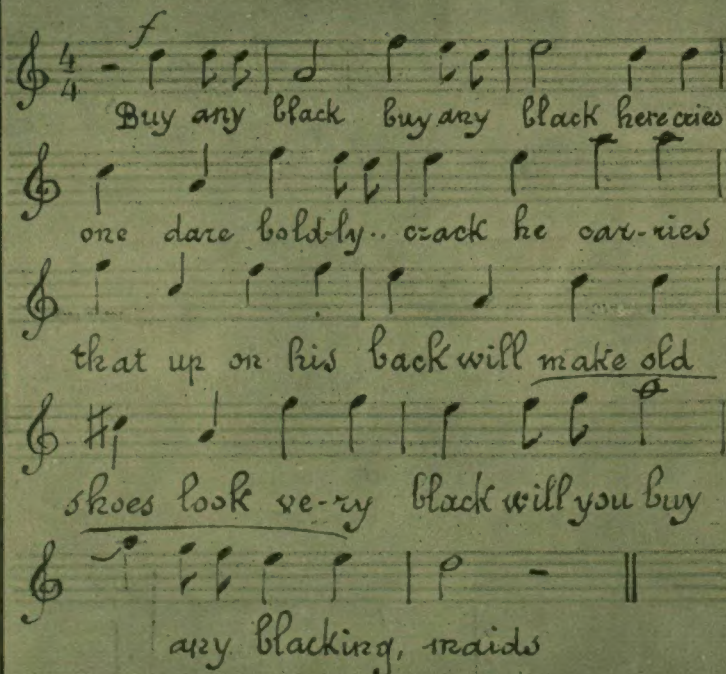 4
4
f
Buy any black buy any black here cries
one dare bold-ly.. crack he car-ries
that up on his back will make old
shoes look ve-ry black will you buy
any blacking, maids